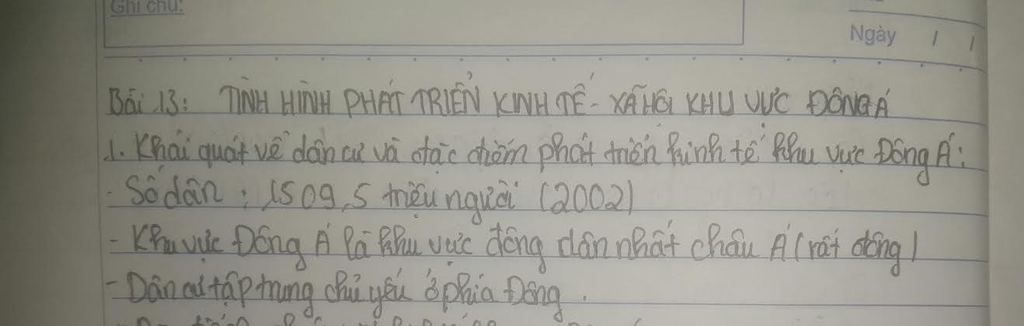 Ghi chú:
Ngày / /
Bài 13: TÌNH HÌNH PHÁT TRIỂN KINH TẾ - XÃ HỘI KHU VỰC ĐÔNG Á
1. Khái quát về dân cư và đặc điểm phát triển kinh tế khu vực Đông Á:
- Số dân : 1509,5 triệu người (2002)
- Khu vực Đông Á là khu vực đông dân nhất châu Á (rất đông)
- Dân cư tập trung chủ yếu ở phía Đông.